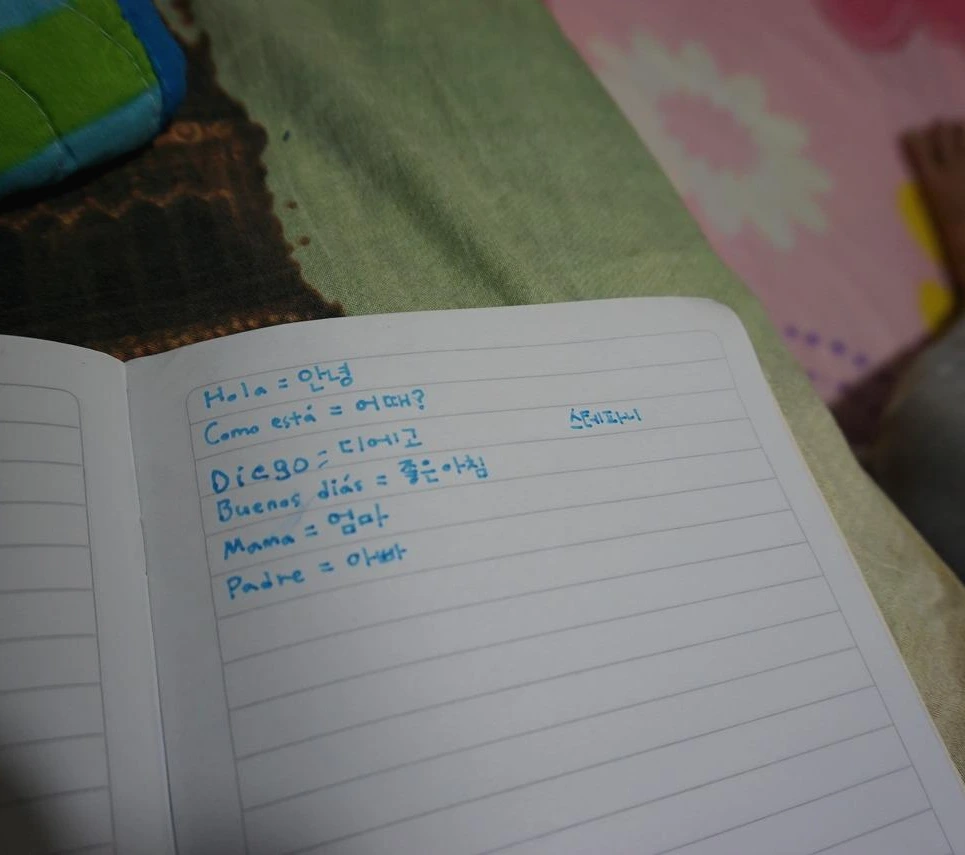 Hola = 안녕
Como está = 어때?
스테파니
Diego = 디에고
Buenos diás = 좋은아침
Mama = 엄마
Padre = 아빠